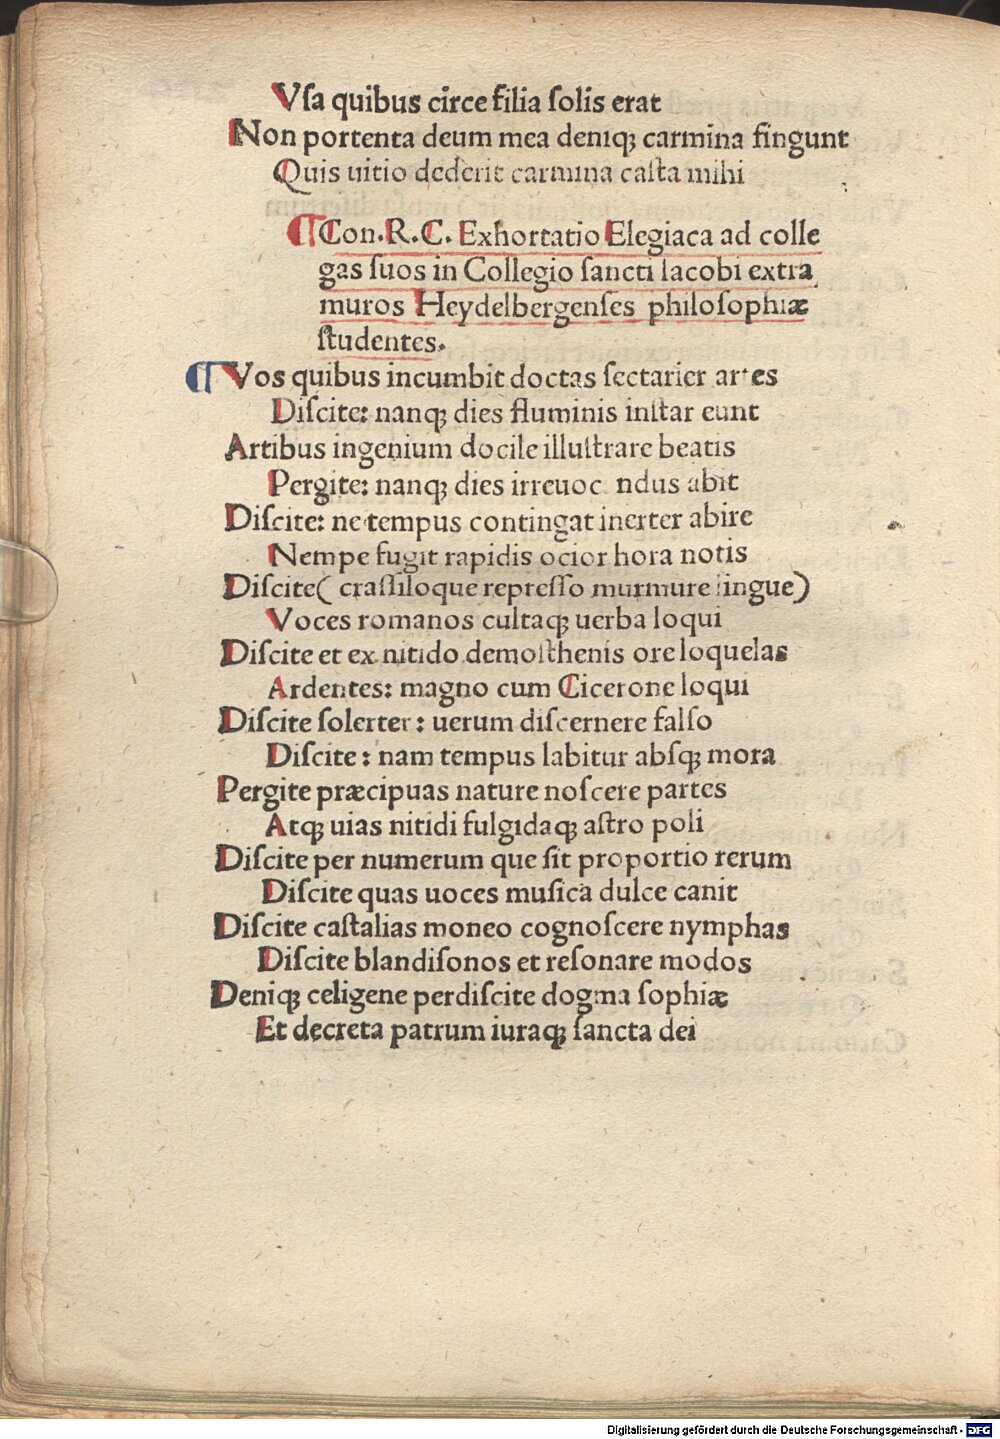 Vſa quibus circe filia ſolis erat
Non portenta deum mea deniqꝫ carmina fingunt
Quis uitio dederit carmina caſta mihi
¶Con.R.C. Exhortatio Elegiaca ad colle
gas ſuos in Collegio ſancti Iacobi extra
muros Heydelbergenſes philoſophiæ
ſtudentes.
¶ Vos quibus incumbit doctas ſectarier artes
Diſcite: nanqꝫ dies fluminis inſtar eunt
Artibus ingenium docile illuſtrare beatis
Pergite: nanqꝫ dies irreuoc ndus abit
Diſcite: ne tempus contingat inerter abire
Nempe fugit rapidis ocior hora notis
Diſcite( craſſiloque repreſſo murmure lingue)
Voces romanos cultaqꝫ uerba loqui
Diſcite et ex nitido demoſthenis ore loquelas
Ardentes: magno cum Cicerone loqui
Diſcite ſolerter: uerum diſcernere falſo
Diſcite: nam tempus labitur abſqꝫ mora
Pergite præcipuas nature noſcere partes
Atqꝫ uias nitidi fulgidaqꝫ aſtro poli
Diſcite per numerum que ſit proportio rerum
Diſcite quas uoces muſica dulce canit
Diſcite caſtalias moneo cognoſcere nymphas
Diſcite blandiſonos et reſonare modos
Deniqꝫ celigene perdiſcite dogma ſophiæ
Et decreta patrum iuraqꝫ ſancta dei
Digitalisierung gefördert durch die Deutsche Forschungsgemeinschaft - DFG